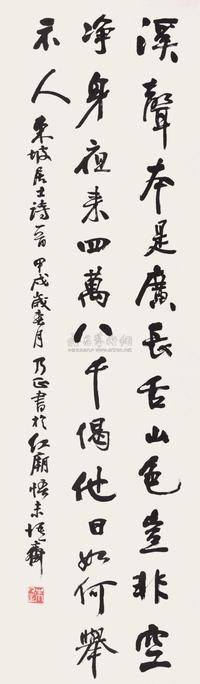 溪聲本是廣長舌山色豈非空
净身夜来四萬八千偈他日如何舉
示人 東坡居士詩一首 甲戌歲春月 乃正書於紅廟悟未悟齋